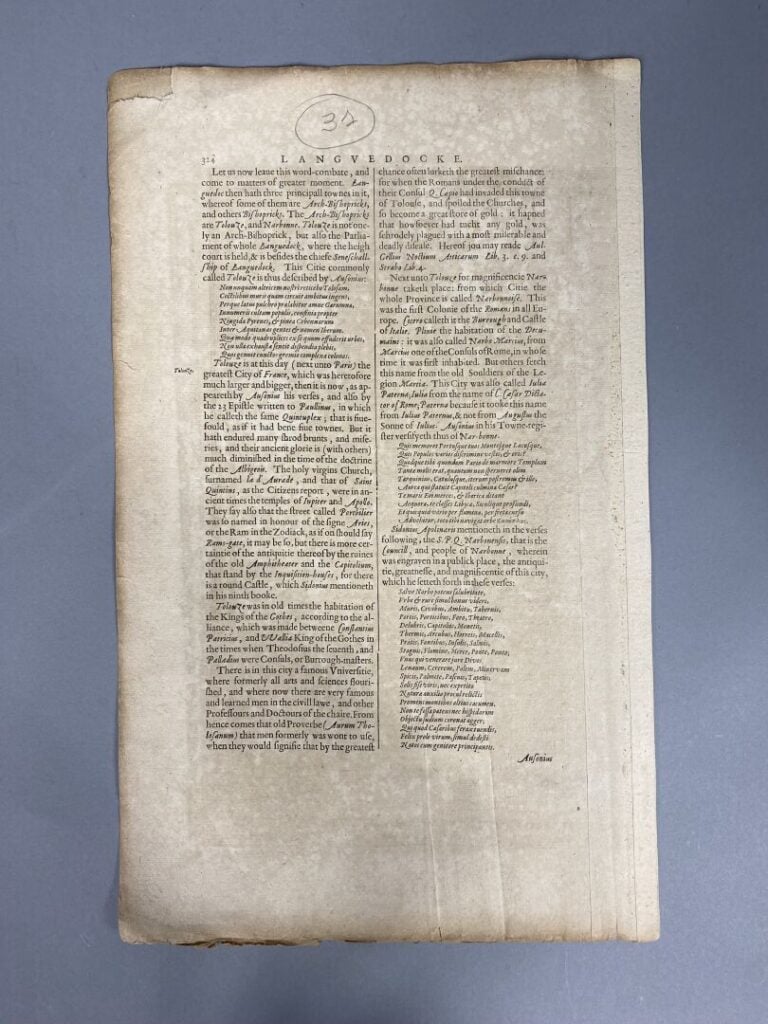 37
324
LANGVEDOCKE.
Let us now leaue this word-combate, and
come to matters of greater moment. Lan-
guedoc then hath three principall townes in it,
whereof some of them are Arch-Bishopricks,
and others Bishopricks. The Arch-Bishopricks
are Tolouze, and Narbonne. Tolouze is not one-
ly an Arch-Bishoprick, but also the Parlia-
ment of whole Languedock, where the heigh
court is held, & is besides the chiefe Seneschall-
ship of Languedock. This Citie commonly
called Tolouze is thus described by Ausonius:
Non unquam altricem nostri reticebo Tolosam,
Coctilibus muris quam circuit ambitus ingens,
Perque latus pulchro prælabitur amne Garumna,
Innumeris cultam populis, confinia propter
Ningida Pyrenes, & pinea Cebennarum
Inter Aquitanas gentes & nomen Iberum.
Quæ modo quadruplices ex se quum effuderit urbes,
Non ulla exhausta sentit dispendia plebis,
Quos genuit cunctos gremio complexa colonos.
Tolouze
Tolouze is at this day (next unto Paris) the
greatest City of France, which was heretofore
much larger and bigger, then it is now, as ap-
peareth by Ausonius his verses, and also by
the 23 Epistle written to Paullinus, in which
he calleth the same Quintuplex, that is fiue-
fould, as if it had bene fiue townes. But it
hath endured many shrod brunts, and mise-
ries, and their ancient glorie is (with others)
much diminished in the time of the doctrine
of the Albigeois. The holy virgins Church,
surnamed la d'Aurade, and that of Saint
Quintins, as the Citizens report, were in an-
cient times the temples of Iupiter and Apollo.
They say also that the street called Pertbilier
was so named in honour of the signe Aries,
or the Ram in the Zodiack, as if on should say
Rams-gate, it may be so, but there is more cer-
taintie of the antiquitie thereof by the ruines
of the old Amphitheater and the Capitolium,
that stand by the Inquisition-houses, for there
is a round Castle, which Sidonius mentioneth
in his ninth booke.
Tolouze was in old times the habitation of
the Kings of the Gothes, according to the al-
liance, which was made betweene Constantius
Patricius, and VVallia King of the Gothes in
the times when Theodosius the seuenth, and
Palladius were Consuls, or Burrough-masters.
There is in this city a famous Vniversitie,
where formerly all arts and sciences flouri-
shed, and where now there are very famous
and learned men in the civill lawe, and other
Professours and Doctours of the chaire. From
hence comes that old Proverbe (Aurum Tho-
losanum) that men formerly was wont to use,
when they would signifie that by the greatest
chance often lurketh the greatest mischance:
for when the Romans under the conduct of
their Consul Q. Cepio had invaded this towne
of Tolouse, and spoiled the Churches, and
so become a great store of gold: it hapned
that howsoever had tucht any gold, was
schrodely plagued with a most miserable and
deadly disease. Hereof you may reade Aul.
Gellius Noctium Atticarum Lib. 3. c. 9. and
Strabo Lib. 4.
Next unto Tolouze for magnificencie Nar-
bonne taketh place: from which Citie the
whole Province is called Narbonnoise. This
was the first Colonie of the Romans in all Eu-
rope. Cicero calleth it the Burrough and Castle
of Italie. Plinie the habitation of the Decu-
mains: it was also called Narbo Marcius, from
Marcius one of the Consuls of Rome, in whose
time it was first inhabited. But others fetch
this name from the old Souldiers of the Le-
gion Marcia. This City was also called Iulia
Paterna, Iulia from the name of C. Cæsar Dicta-
tor of Rome; Paterna because it tooke this name
from Iulius Paternus, & not from Augustus the
Sonne of Iulius. Ausonius in his Towne-regi-
ster versifyeth thus of Narbonne.
Quis memoret Portusque tuos Montesque Lacusque,
Quis Populos vario discrimine vestis, & oris?
Quodque tibi quondam Pario de marmore Templum
Tantæ molis erat, quantam non sperneret olim
Tarquinius, Catulusque, iterum postremus & ille,
Aurea qui statuit Capitoli culmina Cæsar?
Te maris Eoi merces, & Iberica ditant
Æquora, te classes Libyci, Siculique profundi,
Et quicquid vario per flumina, per freta cursu
Advehitur, toto tibi navigat orbe
Sidonius Apolinaris mentioneth in the verses
following, the S. P. Q. Narbonensis, that is the
Councill, and people of Narbonne, wherein
was engraven in a publick place, the antiqui-
tie, greatnesse, and magnificentie of this city,
which he setteth forth in these verses:
Salve Narbo potens salubritate,
Vrbe & rure simul bonus videri,
Muris, Civibus, Ambitu, Tabernis,
Portis, Porticibus, Foro, Theatro,
Delubris, Capitoliis, Monetis,
Thermis, Arcubus, Horreis, Macellis,
Pratis, Fontibus, Insulis, Salinis,
Stagnis, Flumine, Merce, Ponte, Ponto,
Vnus qui venerere jure Divos
Lenæum, Cererem, Palem, Minervam
Spicis, Palmite, Pascuis, Tapetis,
Solis fise viris, nec expetito
Naturæ auxilio procul relictis
Promens montibus altius cacumen.
Non te fossa patens nec hispidarum
Objectu sudium coronat agger;
Quo quod Cæsaribus ferax tuendis,
Felix prole virum, simul dedisti
Natos cum genitore principantis.
Ausonius